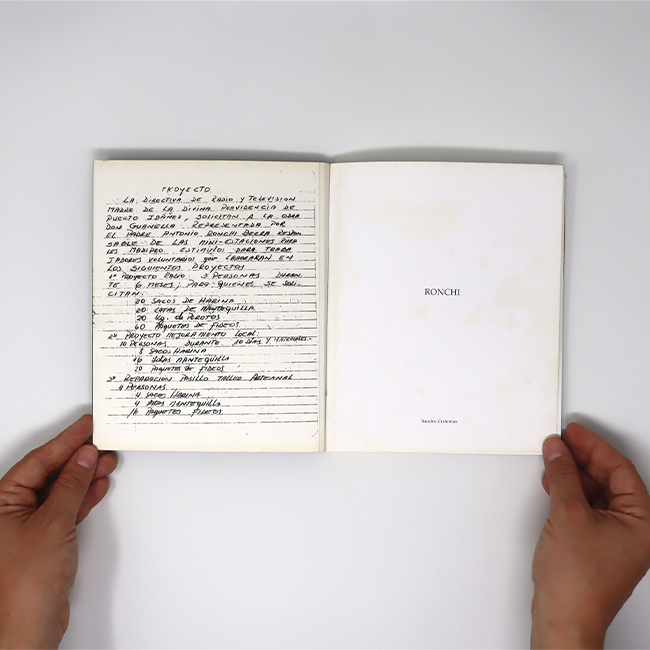 PROYECTO
LA DIRECTIVA DE RADIO Y TELEVISION
MADRE DE LA DIVINA PROVIDENCIA DE
PUERTO IBAÑEZ, SOLICITAN A LA OBRA
DON GUANELLA REPRESENTADA POR
EL PADRE ANTONIO RONCHI BERRA RESPON
SABLE DE LAS MINI-ESTACIONES PARA
LES MADIPRO. ESTIMULOS PARA TRABA
JADORES VOLUNTARIOS QUE LABORARAN EN
LOS SIGUIENTES PROYECTOS
1º PROYECTO RADIO 3 PERSONAS DURAN
TE 6 MESES; PARA QUIENES SE SOLI-
CITAN:
20 SACOS DE HARINA
20 LATAS DE MANTEQUILLA
20 Kg. de POROTOS
60 PAQUETES DE FIDEOS
2º PROYECTO MEJORAMIENTO LOCAL:
10 PERSONAS DURANTE 10 DIAS Y
8 SACOS HARINA
16 LATAS MANTEQUILLA
20 PAQUETES DE FIDEOS
3º REPARACION PASILLO TALLER ARTESANAL
4 PERSONAS
4 SACOS HARINA
4 LATAS MANTEQUILLA
16 PAQUETES FIDEOS
RONCHI
Sandro Cisternas